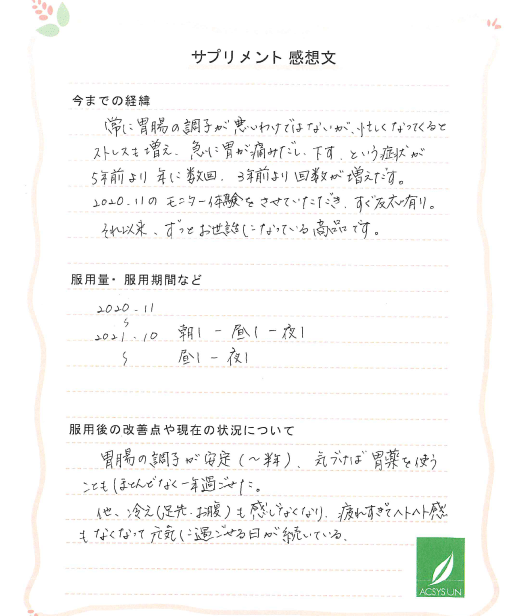 サプリメント 感想文
今までの経緯
常に胃腸の調子が悪いわけではないが、忙しくなってくると
ストレスも増え、急に胃が痛みだし、下す、という症状が
5年前より 年に数回、3年前より回数が増えだす。
2020.11の モニター体験をさせていただき、すぐ反応有り。
それ以来、ずっとお世話になっている商品です。
服用量・服用期間など
2020.11
〜
2021.10 朝1 - 昼1 - 夜1
〜 昼1 - 夜1
服用後の改善点や現在の状況について
胃腸の調子が安定(〜半年)、気づけば 胃薬を使う
こともほとんどなく一年過ごせた。
他、冷え(足先、お腹)も感じなくなり、疲れすぎてヘトヘト感
もなくなって 元気に過ごせる日が続いている。
ACSYSUN